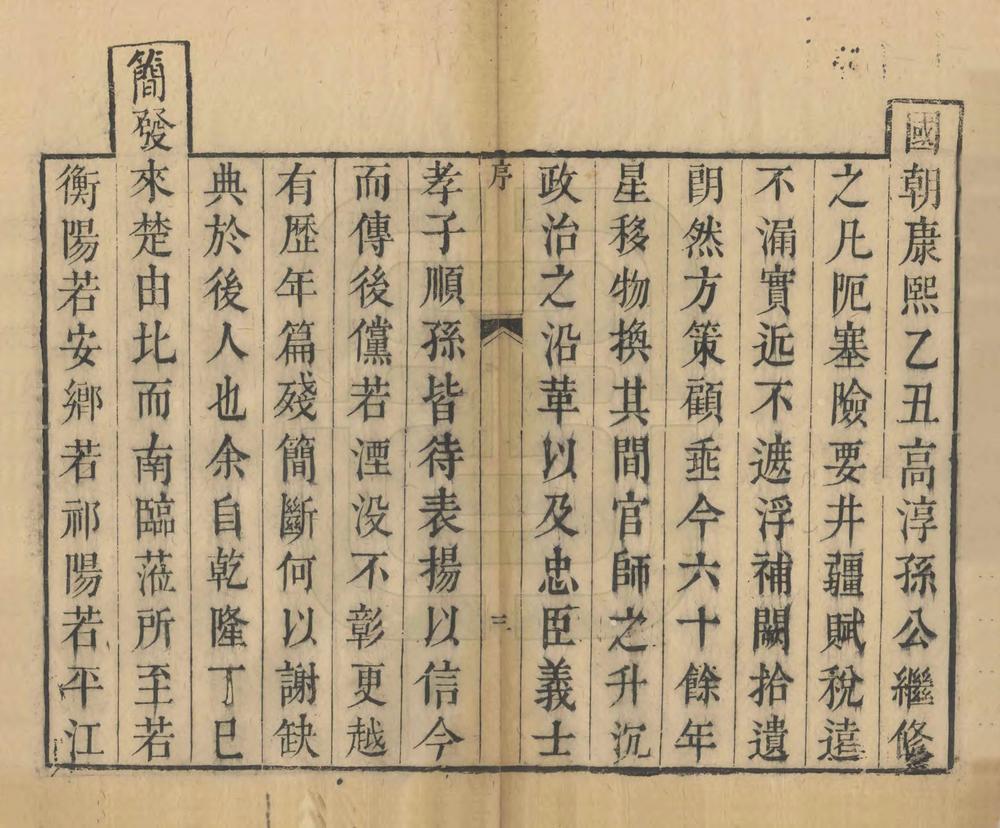 國朝康熙乙丑高淳孫公繼修
之凡阨塞險要井疆賦稅遠
不漏實近不遮浮補闕拾遺
朗然方策顧垂今六十餘年
星移物換其間官師之升沉
政治之沿革以及忠臣義士
序
三
孝子順孫皆待表揚以信今
而傳後儻若湮没不彰更越
有歷年篇殘簡斷何以謝缺
典於後人也余自乾隆丁巳
簡發來楚由北而南臨蒞所至若
衡陽若安鄉若祁陽若平江